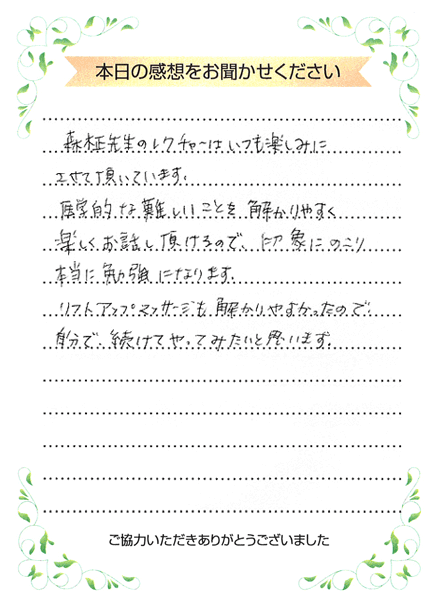 本日の感想をお聞かせください
先生のレクチャーはいつも楽しみに
させて頂いています。
医学的な難しいことを、解かりやすく
楽しくお話し頂けるので、印象にのこり
本当に勉強になります。
リフトアップマッサージも解かりやすかったので、
自分で、続けてやってみたいと思います。
ご協力いただきありがとうございました